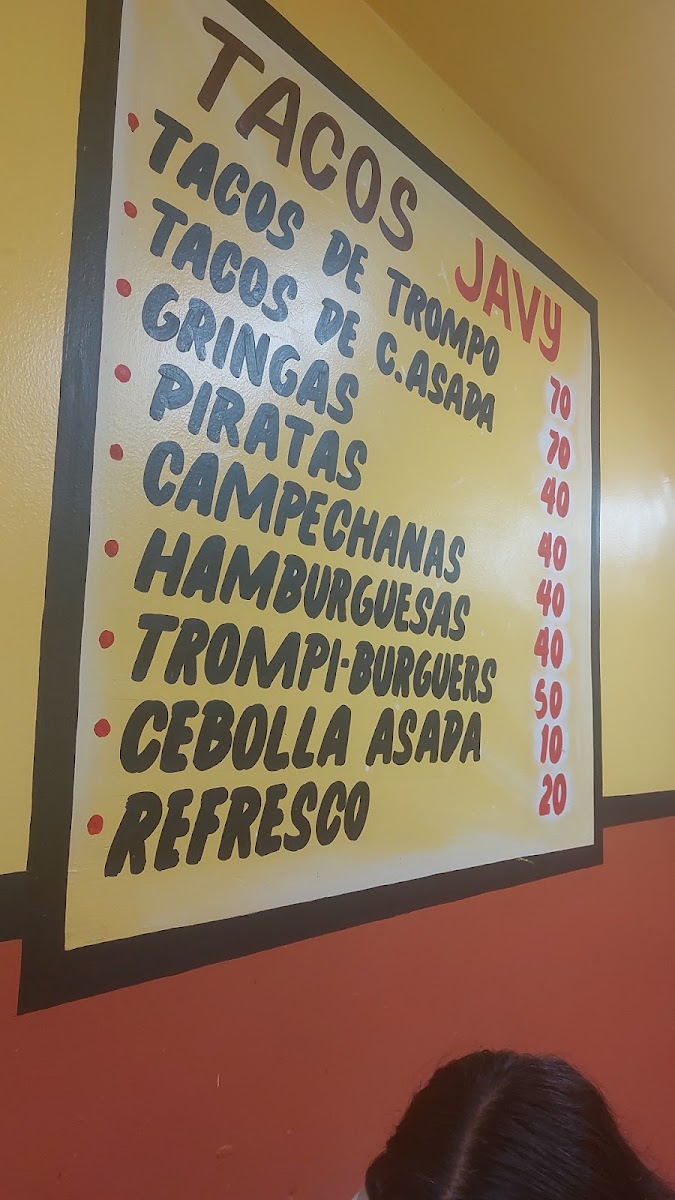 TACOS JAVY
• TACOS DE TROMPO 70
• TACOS DE C.ASADA 70
• GRINGAS 40
• PIRATAS 40
• CAMPECHANAS 40
• HAMBURGUESAS 40
• TROMPI-BURGUERS 50
• CEBOLLA ASADA 10
• REFRESCO 20